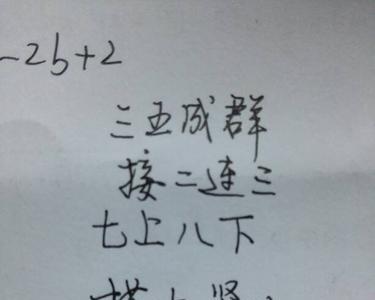 -2b+2
三五成群
接二连三
七上八下